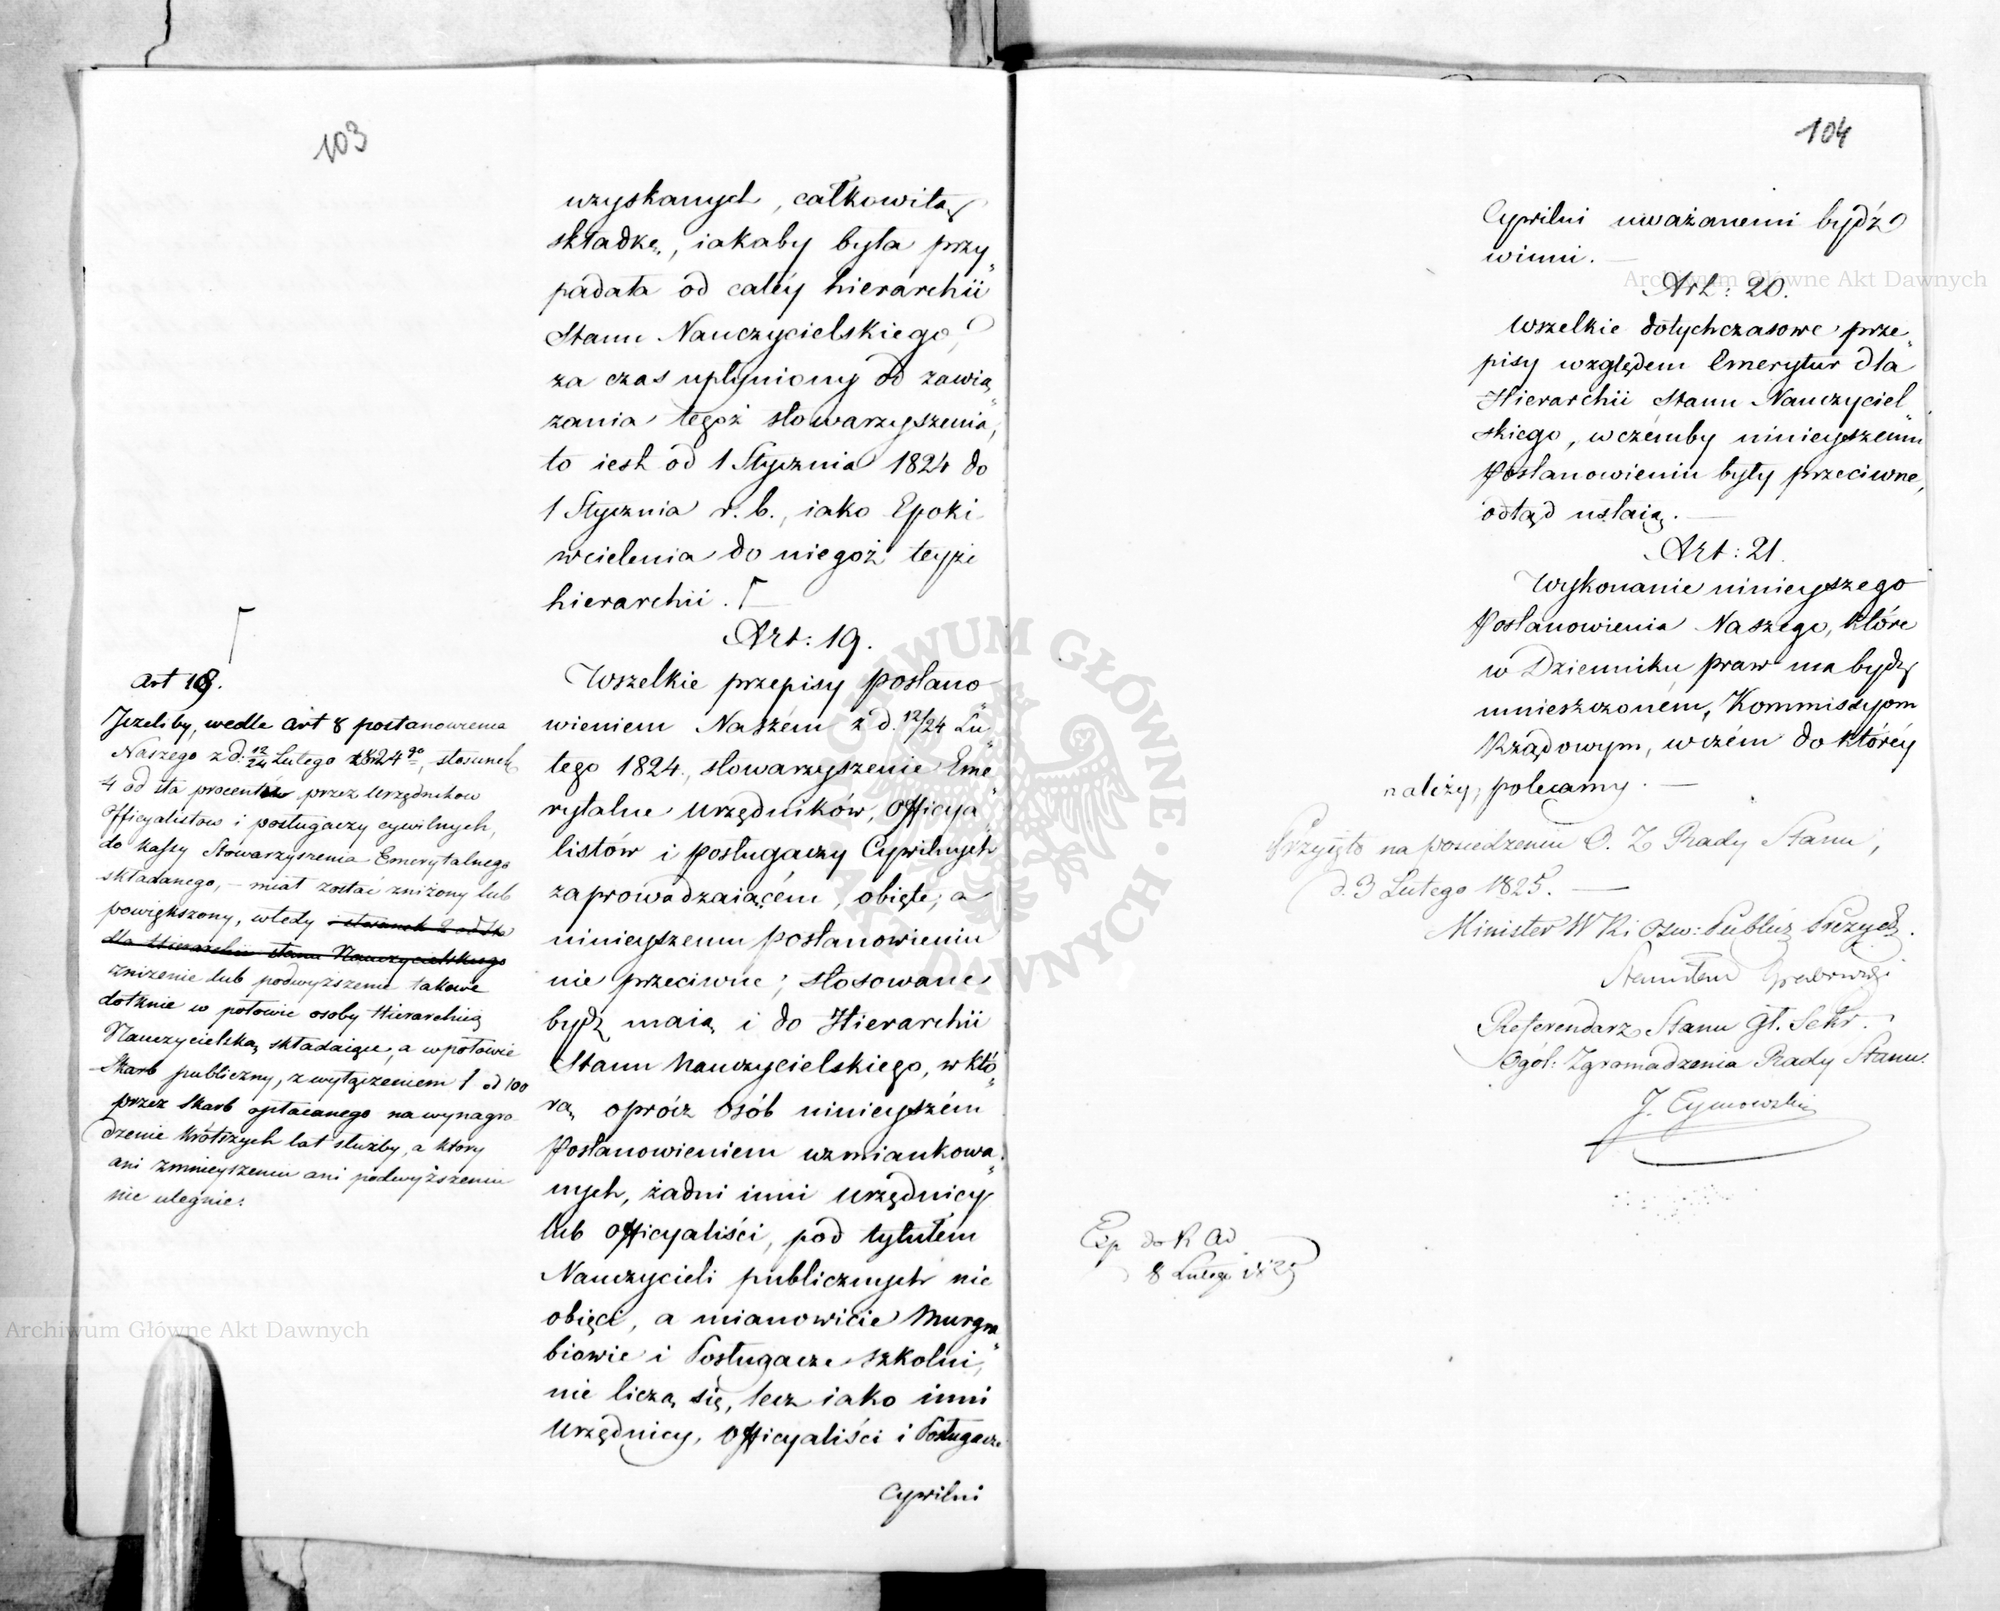 103
uzyskanych, całkowitą
składkę, iakaby była przy„
padała od całéy hierarchii
Stanu Nauczycielskiego,
za czas upłyniony od zawią„
zania tegoż stowarzyszenia,
to iest od 1 Stycznia 1824 do
1 Stycznia r. b., iako Epoki
wcielenia do niegoż teyże
hierarchii.
Art: 19.
Wszelkie przepisy postano„
wieniem Naszém z d. 12/24 Lu„
tego 1824., stowarzyszenie Eme„
rytalne Urzędników, Officya„
listów i posługaczy Cywilnych
zaprowadzaiącém, obięte, a
ninieyszemu postanowieniu
nie przeciwne, stosowane
bydź maią i do Hierarchii
Stanu Nauczycielskiego, w któ„
rą oprócz osób ninieyszém
Postanowieniem wzmiankowa„
nych, żadni inni Urzędnicy
lub Officyaliści, pod tytułém
Nauczycieli publicznych nie
obięci, a mianowicie Murgra„
biowie i Posługacze szkolni,
nie liczą się, lecz iako inni
Urzędnicy, Officyaliści i Posługacze
Cywilni
Art 18.
Jeżeliby, wedle art 8 postanowienia
Naszego z d. 12/24 Lutego 1824 go, stosunek
4 od sta procentów przez Urzędników
Officyalistów i posługaczy cywilnych,
do kassy Stowarzyszenia Emerytalnego
składanego, – miał zostać zniżony lub
powiększony, wtedy i stosunek 2 od sta
dla Hierarchii stanu Nauczycielskiego
zniżenie lub podwyższenie takowe
dotknie w połowie osoby Hierarchią
Nauczycielską składaiące, a w połowie
Skarb publiczny, z wyłączeniem 1 od 100
przez Skarb opłacanego na wynagro
dzenie krótszych lat służby, a który
ani zmnieyszeniu ani podwyższeniu
nie ulegnie.
104
Cywilni uważanemi bydź
winni.
Art: 20.
Wszelkie dotychczasowe prze„
pisy względem Emerytur dla
Hierarchii Stanu Nauczyciel„
skiego, w czémby ninieyszemu
Postanowieniu były przeciwne,
odtąd ustaią.
Art: 21.
Wykonanie ninieyszego
Postanowienia Naszego, które
w Dzienniku praw ma bydź
umieszczoném, Kommissyom
Rządowym, w czém do któréy
należy, polecamy.
Przyięto na posiedzeniu O. Z Rady Stanu,
d. 3 Lutego 1825.
Minister W R i Ośw: Publicz
Stanisław Grabowski
Referendarz Stanu Gł. Sekr.
Ogól: Zgromadzenia Rady Stanu.
Exp do R Ad
8 Lutego 1825
Archiwum Główne Akt Dawnych
Archiwum Główne Akt Dawnych
ARCHIWUM GŁÓWNE AKT DAWNYCH